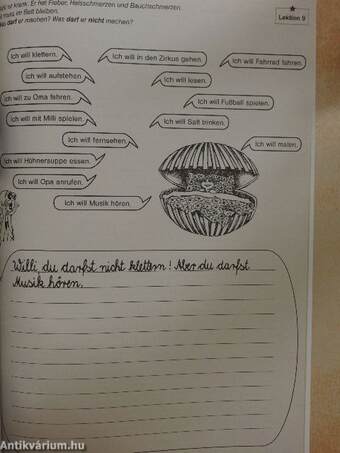 ist krank. Er hat Fieber, Halsschmerzen und Bauchschmerzen.
muss im Bett bleiben.
darf er machen? Was darf er nicht machen?
Lektion 9
Ich will klettern.
Ich will in den Zirkus gehen.
Ich will Fahrrad fahren.
Ich will aufstehen.
Ich will lesen.
Ich will zu Oma fahren.
Ich will Fußball spielen.
Ich will mit Milli spielen.
Ich will Saft trinken.
Ich will fernsehen.
Ich will malen.
Ich will Hühnersuppe essen.
Ich will Opa anrufen.
Ich will Musik hören.
Willi, du darfst nicht klettern! Aber du darfst
Musik hören.
Antikvárium.hu